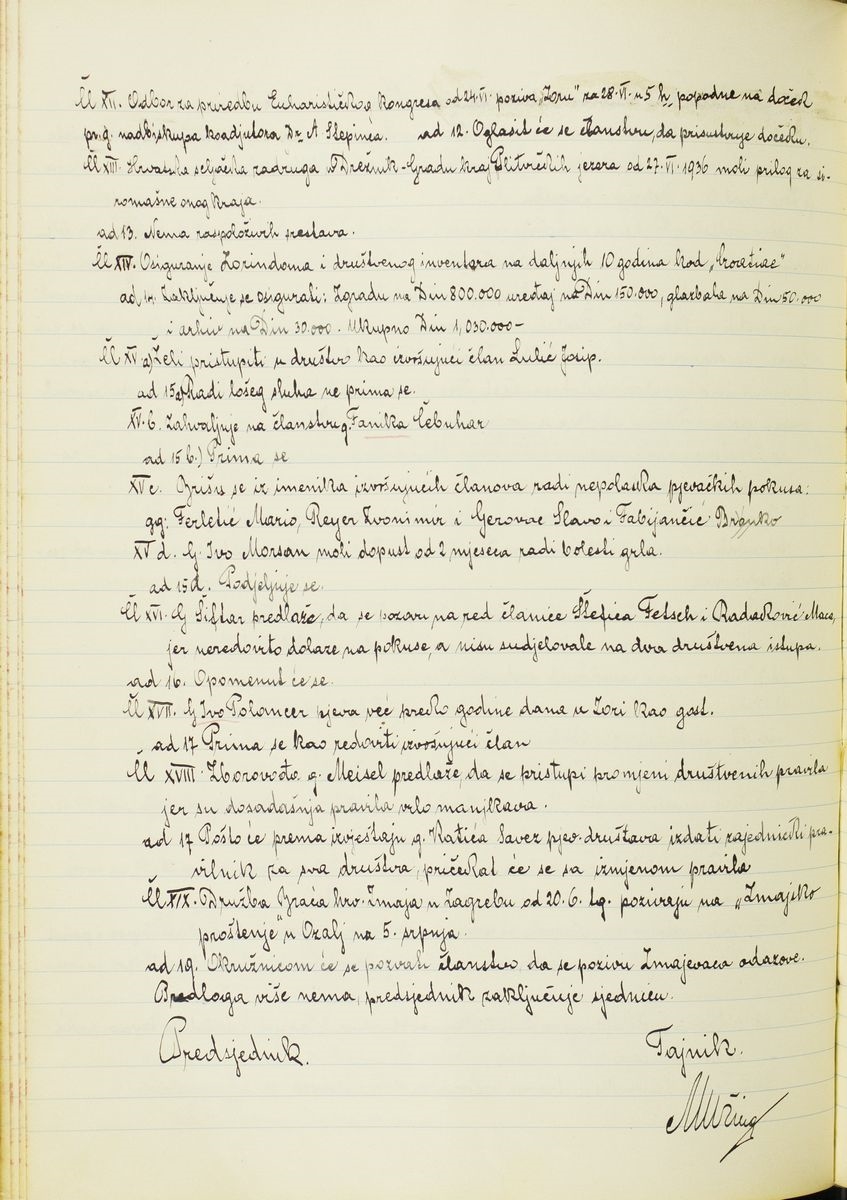 Čl XII. Odbor za priredbu Euharističkog kongresa od 24.VI. poziva „Zoru" za 28.VI. u 5 h popodne na doček
pr. g. nadbiskupa koadjutora Dr. A Stepinca. ad 12. Oglasit će se članstvu, da prisustvuje dočeku.
Čl XIII. Hrvatska seljačka zadruga u Drežnik-Gradu kraj Plitvičkih jezera od 27.VI.1936 moli prilog za si-
romašne onog kraja.
ad 13. Nema raspoloživih sredstava.
Čl XIV. Osiguranje Zorindoma i društvenog inventara na daljnjih 10 godina kod „Croatiae"
ad 14. Zaključuje se osigurati: Zgradu na Din 800.000 uređaj na Din 150.000, glazbala na Din 50.000
i arhiv na Din 30.000. Ukupno Din 1,030.000-
Čl XV a) Želi pristupiti u društvo kao izvršujući član Lulić Josip.
ad 15a) Radi lošeg sluha ne prima se.
XV.b. Zahvaljuje na članstvu g. Fanika Čebuhar
ad 15 b.) Prima se
XV c. Brišu se iz imenika izvršujućih članova radi nepolaska pjevačkih pokusa:
gg: Ferletić Mario, Reyer Zvonimir i Gerovac Slavo i Fabijančić Branko
XV d. G. Ivo Morsan moli dopust od 2 mjeseca radi bolesti grla.
ad 15d. Podjeljuje se.
Čl XVI. G Šiftar predlaže, da se pozovu na red članice Štefica Fetsch i Radacković Maca,
jer neredovito dolaze na pokuse, a nisu sudjelovale na dva društvena istupa.
ad 16. Opomenut će se.
Čl XVII. G Ivo Polancer pjeva već preko godine dana u Zori kao gost.
ad 17 Prima se kao redoviti izvršujući član
Čl XVIII. Zborovođa g. Meisel predlaže, da se pristupi promjeni društvenih pravila
jer su dosadašnja pravila vrlo manjkava.
ad 17 Pošto će prema izvještaju g. Katića Savez pjev. društava izdati zajednički pra-
vilnik za sva društva, pričekat će se sa izmjenom pravila
Čl XIX. Družba Braća hrv. Zmaja u Zagrebu od 20.6. tg. pozivaju na „Zmajsko
proštenje" u Ozalj na 5. srpnja.
ad 19. Okružnicom će se pozvati članstvo, da se pozivu Zmajevaca odazove.
Predloga više nema, predsjednik zaključuje sjednicu.
Predsjednik.
Tajnik.